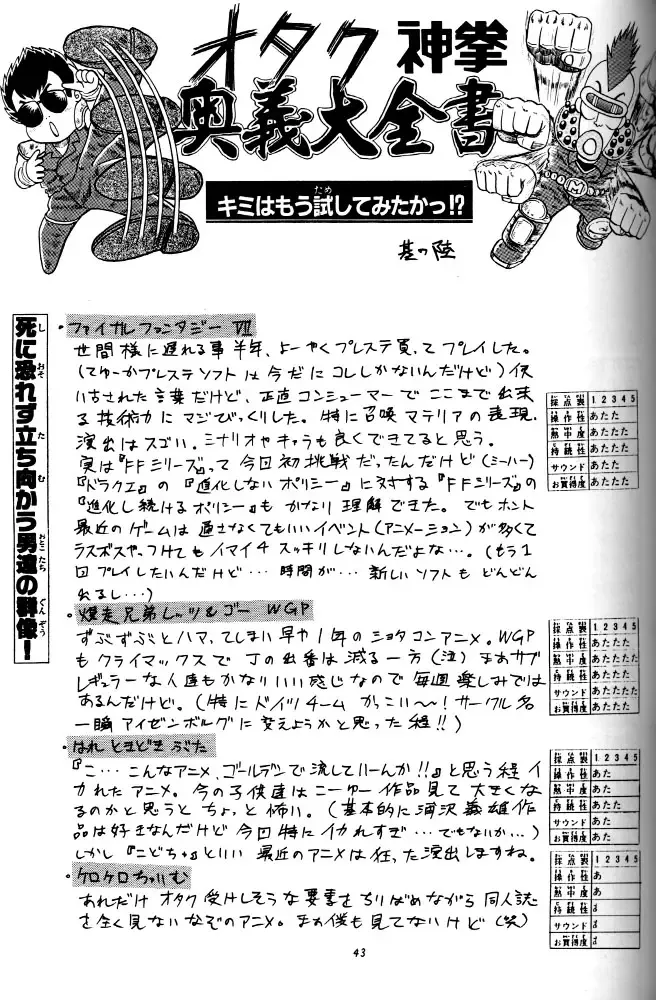 オタク神拳
奥義大全書
キミはもう試してみたかっ!?
其の陸
死に恐れず立ち向かう男達の群像!
・ファイナルファンタジー VII
世間様に遅れる事半年、よーやくプレステ買ってプレイした。
(てゆーかプレステソフトは今だにコレしかないんだけど)使
い古された言葉だけど、正直コンシューマーでここまで出来
る技術力にマジびっくりした。特に召喚マテリアの表現、
演出はスゴい。シナリオやキャラも良くできてると思う。
実は『FFシリーズ』って今回初挑戦だったんだけど(ミーハー)
『ドラクエ』の『進化しないポリシー』に対する『FFシリーズ』の
『進化し続けるポリシー』もかなり理解できた。でもホント
最近のゲームは直さなくてもいいイベント(アニメーション)が多くて
ラスボスやっつけてもイマイチスッキリしないんだよな…。(もう1
回プレイしたいんだけど…時間が…新しいソフトもどんどん
出るし…)
採点表 1 2 3 4 5
操作性 あたた
熱中度 あたたた
持続性 あたたた
サウンド あたた
お買得度 あたたた
・爆走兄弟レッツ&ゴー WGP
ずぶずぶとハマってしまい早や1年のショタコンアニメ。WGP
もクライマックスでJの出番は減る一方(泣)まあサブ
レギュラーな人達もかなりいい感じなので毎週楽しみでは
あるんだけど。(特にドイツチームかっこい〜!サークル名
一瞬アイゼンボルグに変えようかと思った程!!)
採点表 1 2 3 4 5
操作性 あたたた
熱中度 あたたたた
持続性 あたたたた
サウンド あたたた
お買得度 あたたた
・はれときどきぶた
『こ…こんなアニメ、ゴールデンで流していーんか!!』と思う程イ
カれたアニメ。今の子供達はこーゆー作品見て大きくな
るのかと思うとちょっと怖い。(基本的に
作
品は好きなんだけど今回特にイカれすぎ…でもないか…)
しかし『こどちゃ』といい最近のアニメは狂った演出しますね。
採点表 1 2 3 4 5
操作性 あた
熱中度 あたた
持続性 あたた
サウンド あた
お買得度 あた
・ケロケロちゃいむ
あれだけオタク受けしそうな要素をちりばめながら同人誌
を全く見ないなぞのアニメ。まあ僕も見てないけど(笑)
採点表 1 2 3 4 5
操作性 あ
熱中度 あ
持続性
サウンド
お買得度
43